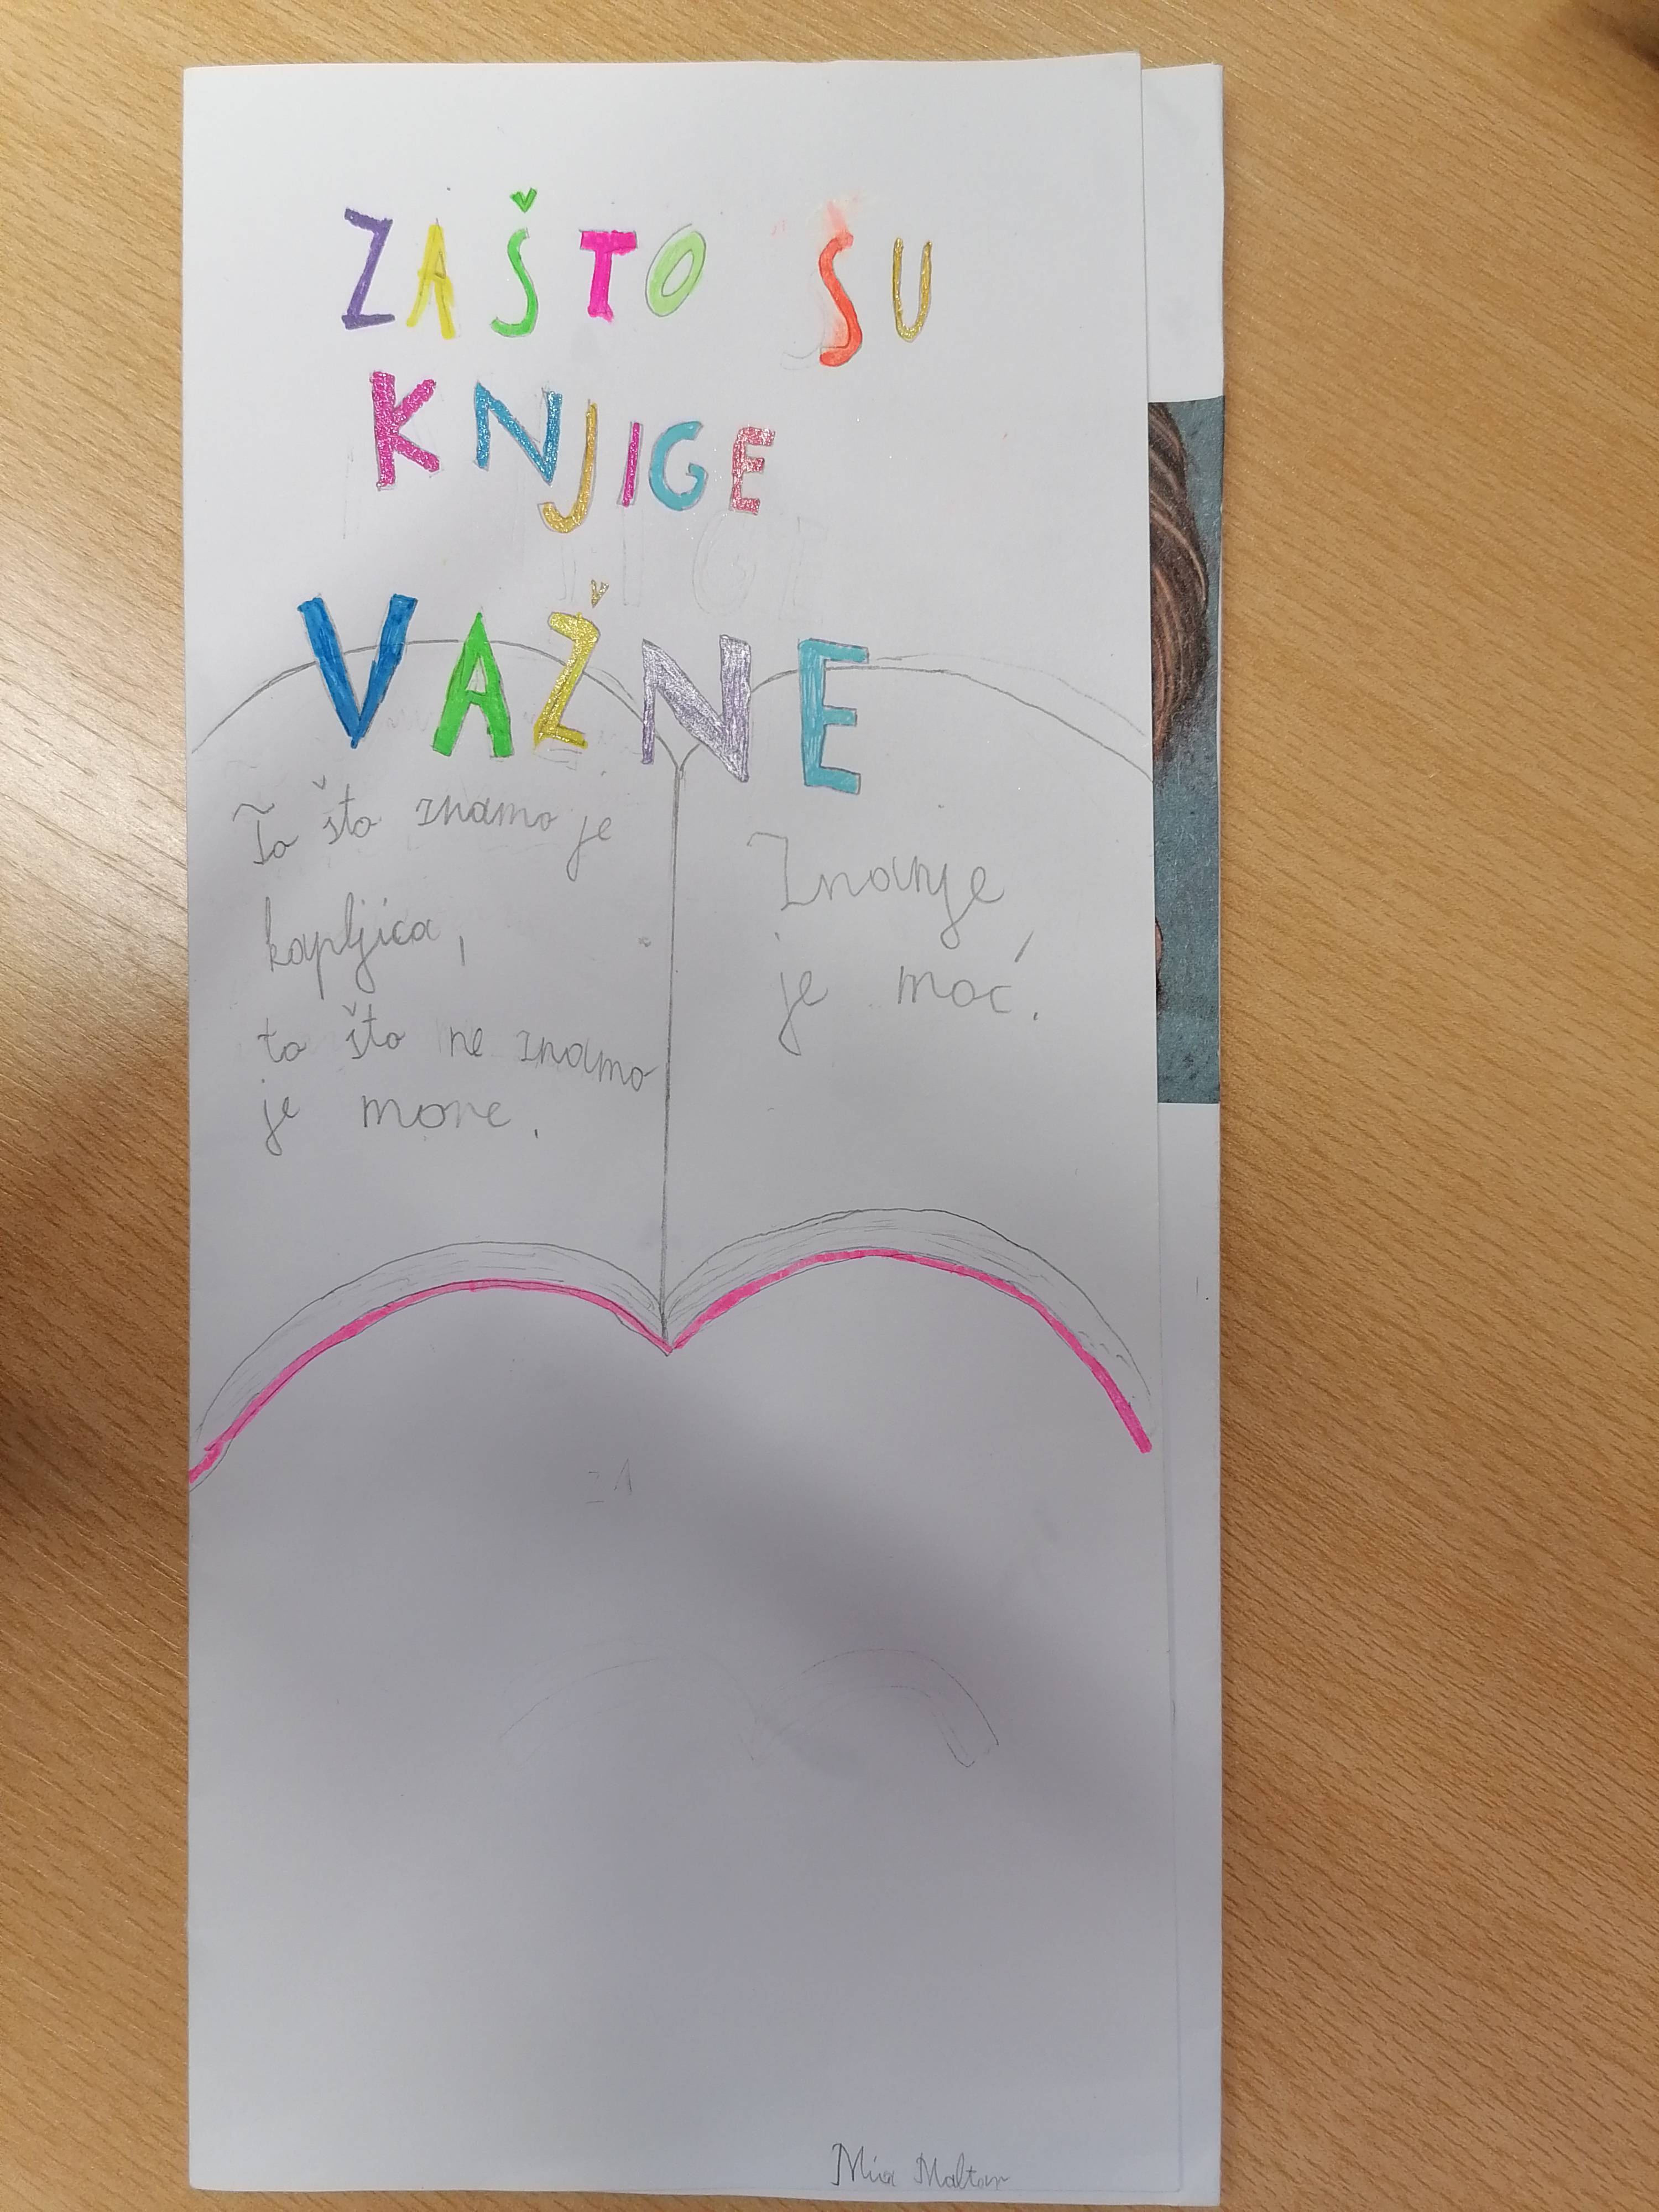 ZAŠTO SU
KNJIGE
VAŽNE
To što znamo je
kapljica,
to što ne znamo
je more.
Znanje
je moć.
Mia